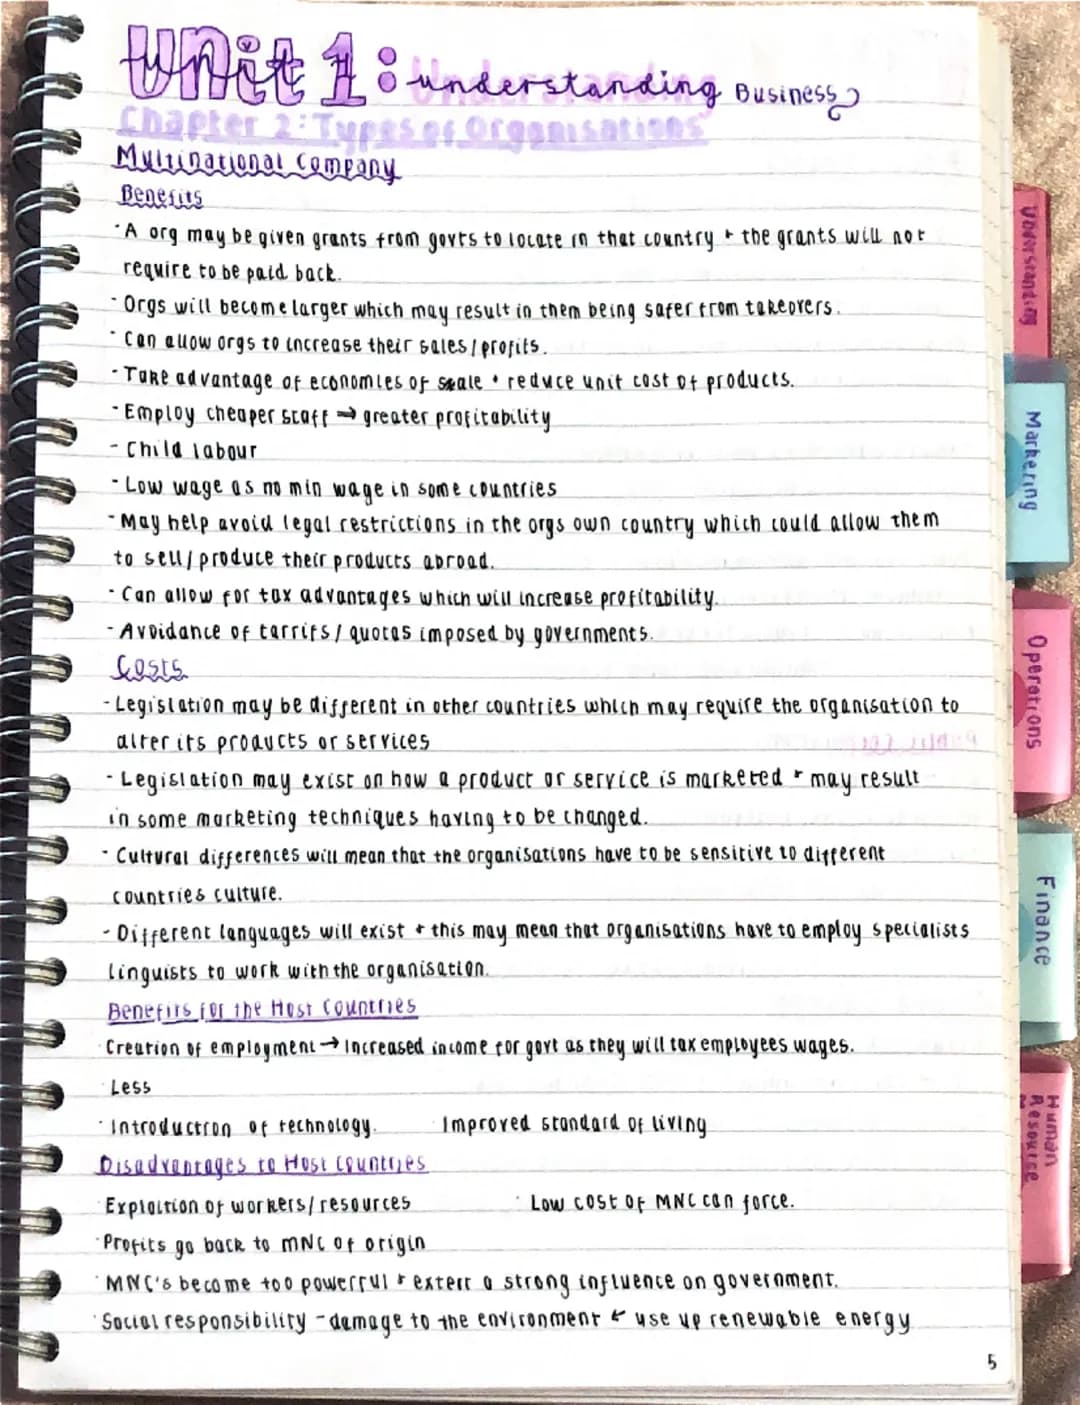 Unit 1: Understanding Business
Chapter 2: Types of Organisations
Multinational Company
Benefits
· A org may be given grants from govts to locate in that country + the grants will not
require to be paid back.
- Orgs will become larger which may result in them being safer from takeovers.
· Can allow orgs to increase their sales/profits.
- Take advantage of economies of scale + reduce unit cost of products.
- Employ cheaper staff → greater profitability
- Child labour
- Low wage as no min wage in some countries
- May help avoid legal restrictions in the orgs own country which could allow them
to sell/produce their products abroad.
- Can allow for tax advantages which will increase profitability.
- Avoidance of tarrifs/quotas imposed by governments.
Costs
- Legislation may be different in other countries which may require the organisation to
alter its products or services
- Legislation may exist on how a product or service is marketed + may result
in some marketing techniques having to be changed.
- Cultural differences will mean that the organisations have to be sensitive to different
countries culture.
- Different languages will exist + this may mean that organisations have to employ specialists
linguists to work with the organisation.
Benefits for the Host Countries
· Creation of employment → Increased income for govt as they will tax employees wages.
· Less
· Introduction of technology. · Improved standard of living
Disadvantages to Host Countries
· Explaition of workers/resources · Low cost of MNC can force.
· Profits go back to MNC of origin
· MNC's become too powerful + extert a strong influence on government.
· Social responsibility - damage to the environment + use up renewable energy
5
Understanding
Marketing
Operations
Finance
Human
Resource